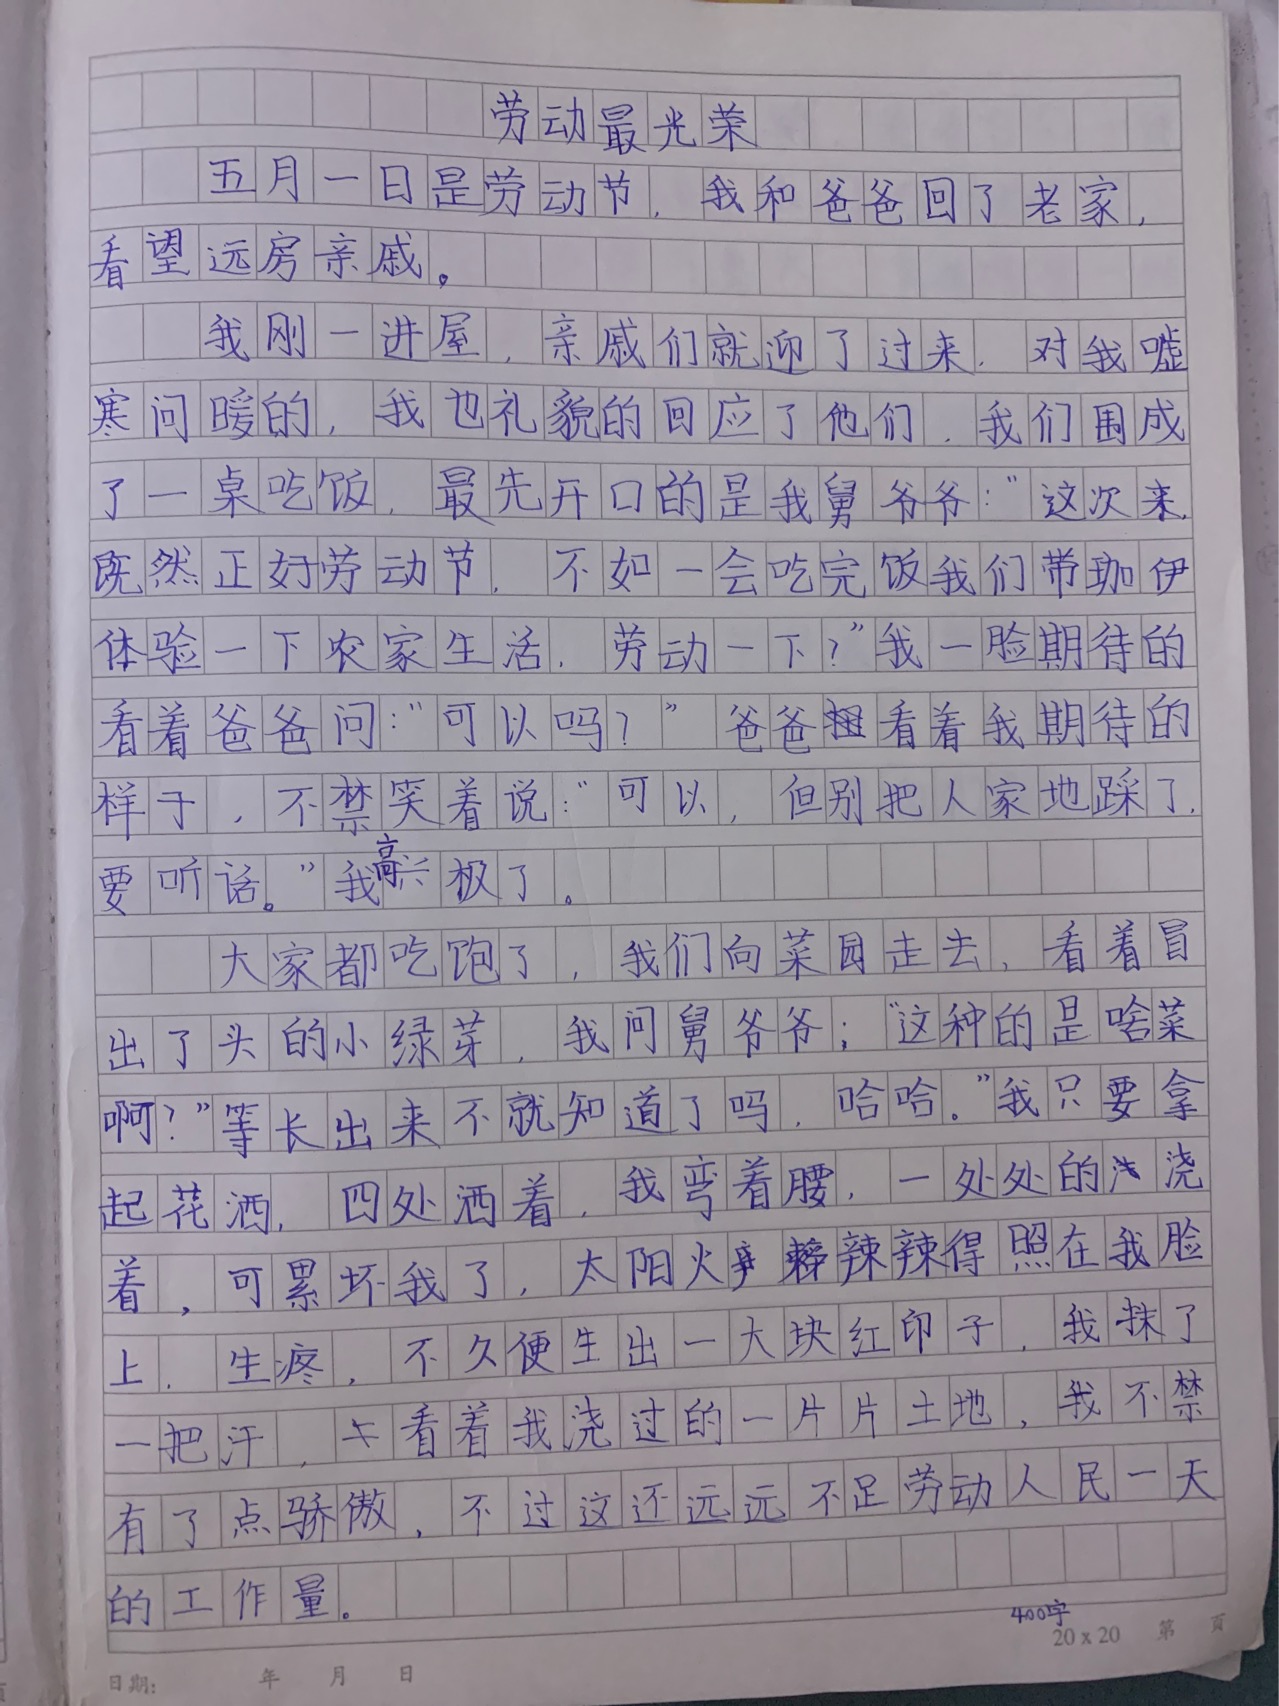 劳动最光荣
五月一日是劳动节，我和爸爸回了老家，
看望远房亲戚。
我刚一进屋，亲戚们就迎了过来，对我嘘
寒问暖的，我也礼貌的回应了他们，我们围成
了一桌吃饭，最先开口的是我舅爷爷：“这次来，
既然正好劳动节，不如一会吃完饭我们带珈伊
体验一下农家生活，劳动一下？”我一脸期待的
看着爸爸问：“可以吗？”爸爸看着我期待的
样子，不禁笑着说：“可以，但别把人家地踩了，
要听话。”我高兴极了。
大家都吃饱了，我们向菜园走去，看着冒
出了头的小绿芽，我问舅爷爷；“这种的是啥菜
啊？”等长出来不就知道了吗，哈哈。”我只要拿
起花洒，四处洒着，我弯着腰，一处处的浇
着，可累坏我了，太阳火辣辣得照在我脸
上，生疼，不久便生出一大块红印子，我抹了
一把汗，看着我浇过的一片片土地，我不禁
有了点骄傲，不过这还远远不足劳动人民一天
的工作量。
400字
20×20 第 页
日期： 年 月 日